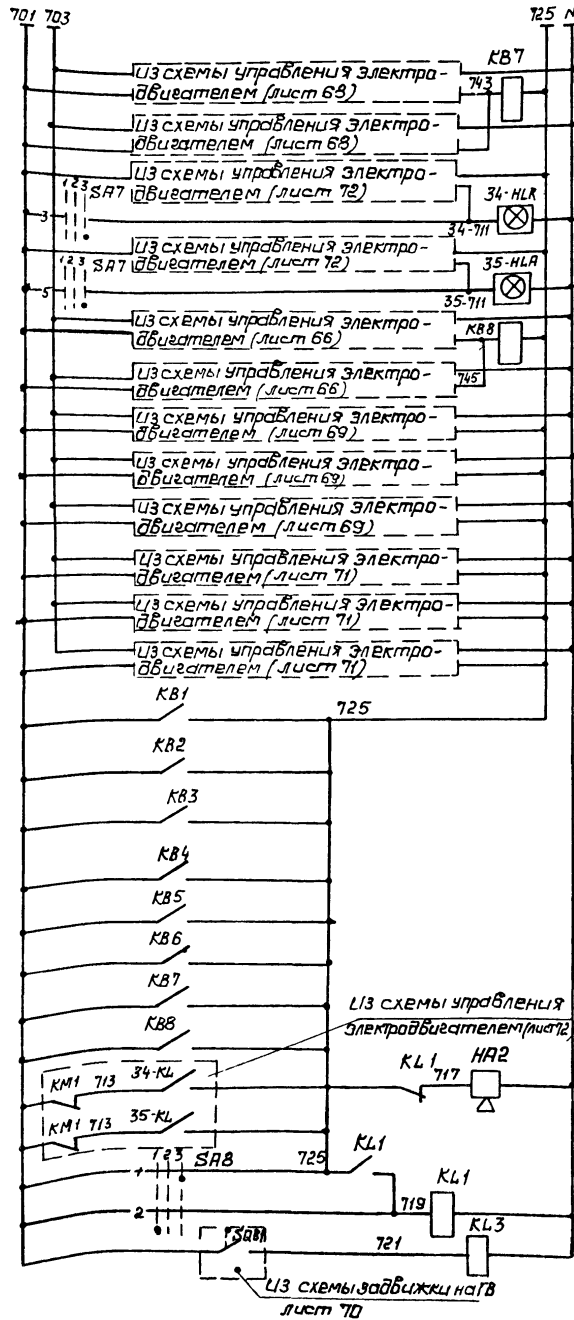 701 703 725 N
KB7
Из схемы управления электро-
двигателем (лист 68)
743
Из схемы управления электро-
двигателем (лист 68)
Из схемы управления электро-
двигателем (лист 72)
1 2 3 SA7
3
34-HLR
34-711
Из схемы управления электро-
двигателем (лист 72)
1 2 3 SA7
5
35-HLA
35-711
Из схемы управления электро-
двигателем (лист 66)
KB8
Из схемы управления электро-
двигателем (лист 66)
745
Из схемы управления электро-
двигателем (лист 69)
Из схемы управления электро-
двигателем (лист 69)
Из схемы управления электро-
двигателем (лист 69)
Из схемы управления электро-
двигателем (лист 71)
Из схемы управления электро-
двигателем (лист 71)
Из схемы управления электро-
двигателем (лист 71)
KB1
725
KB2
KB3
KB4
KB5
KB6
KB7
KB8
Из схемы управления
электродвигателем (лист 72)
KM1 713 34-KL
KL1 717 HA2
KM1 713 35-KL
1 2 3 SA8
1
725
KL1
KL1
2
719
SQB1
721
KL3
Из схемы задвижки на ГВ
лист 70